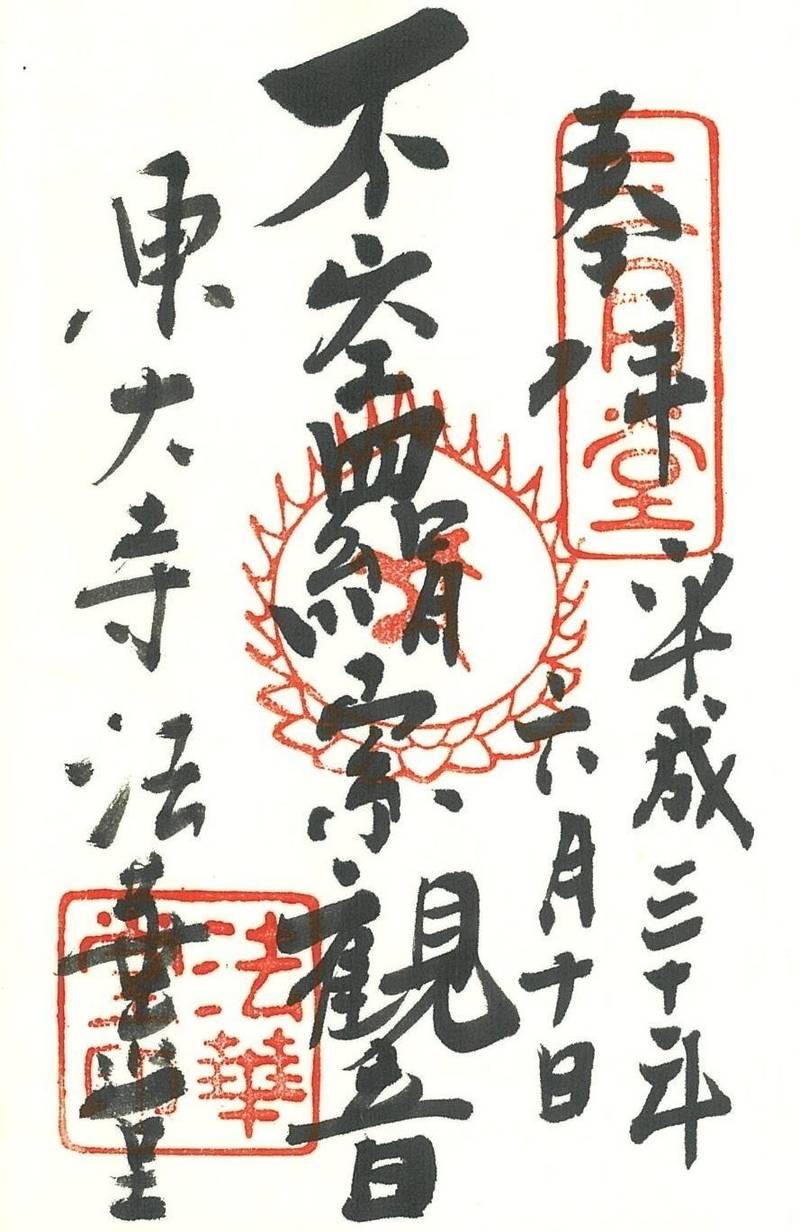 奉拝
平成三十年
六月十日
不空羂索観音
東大寺法華堂
三月堂
法華堂印